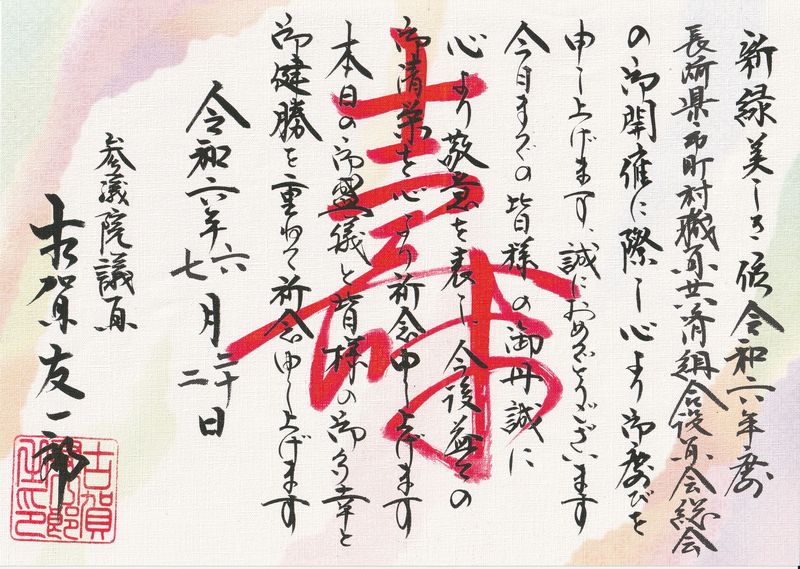 新緑美しき候令和六年度
長崎県市町村職員共済組合役員会総会
の御開催に際し心より御慶びを
申し上げます、誠におめでとうございます
今日までの皆様の御丹誠に
心より敬意を表し、今後益々の
御清栄を心より祈念申し上げます
本日の御盛儀と皆様の御多幸と
御健勝を重ねて祈念申し上げます
令和六年六月二十日
七 二
参議院議員
古賀友一郎
寿
古賀友一郎之印